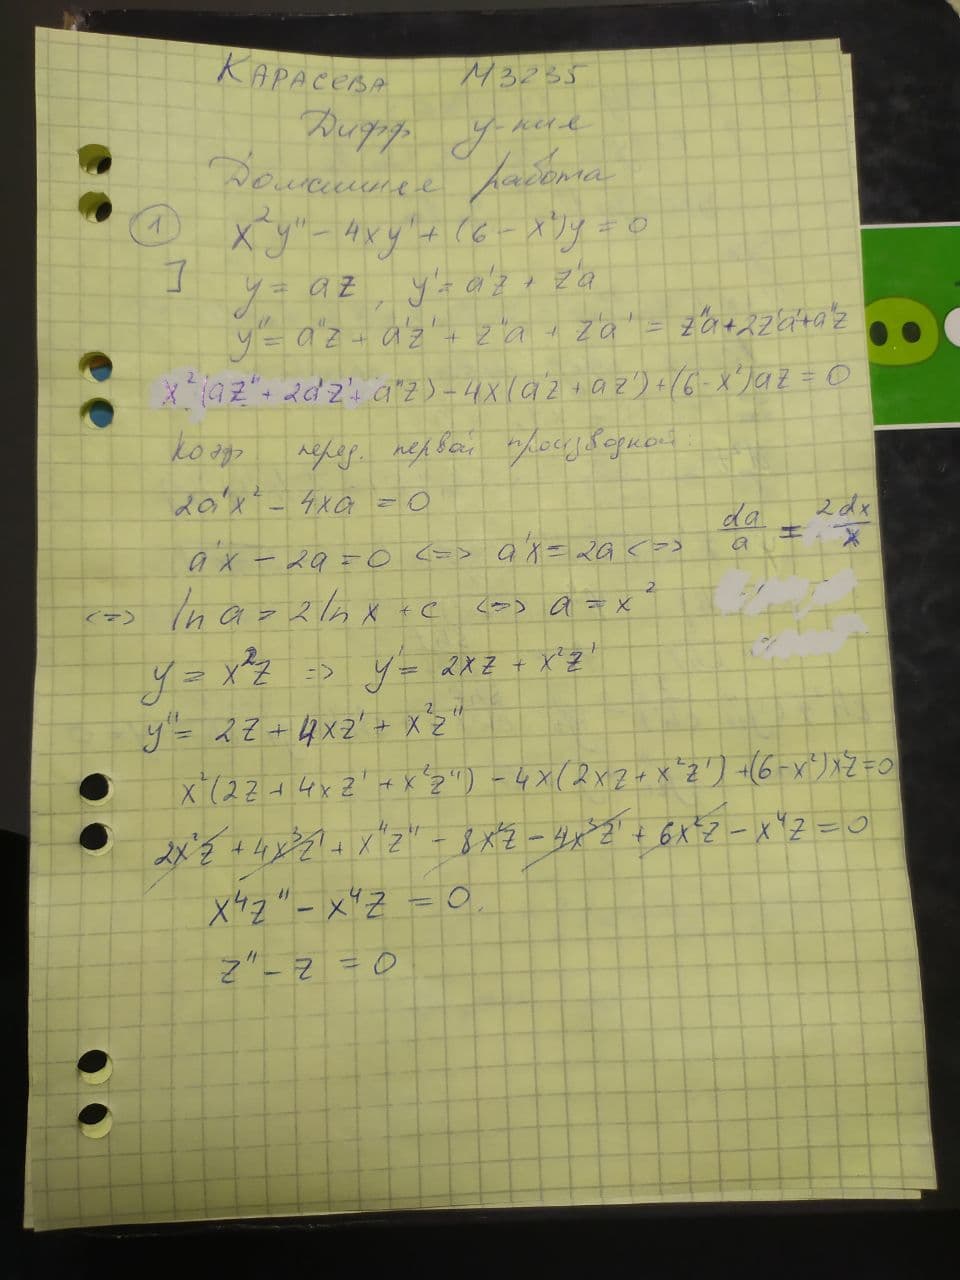 Карасева М3235
Дифф у-ние
Домашнее работа
1 x²y'' - 4xy' + (6 - x²)y = 0
] y = az, y' = a'z + z'a
y'' = a''z + a'z' + z''a + z'a' = z''a + 2z'a' + a''z
x²(az'' + 2a'z' + a''z) - 4x(a'z + az') + (6 - x²)az = 0
Коэф перед. первой производной:
2a'x² - 4xa = 0
a'x - 2a = 0 <=> a'x = 2a <=> da/a = 2dx/x
<=> ln a = 2 ln x + c <=> a = x²
y = x²z => y' = 2xz + x²z'
y'' = 2z + 4xz' + x²z''
x²(2z + 4xz' + x²z'') - 4x(2xz + x²z') + (6 - x²)x²z = 0
2x²z + 4x³z' + x⁴z'' - 8x²z - 4x³z' + 6x²z - x⁴z = 0
x⁴z'' - x⁴z = 0.
z'' - z = 0